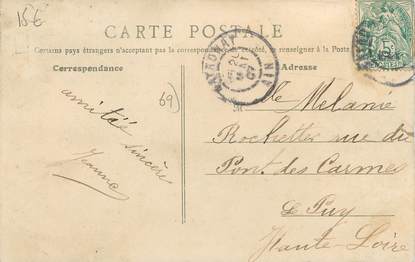 15€
CARTE POSTALE
Certains pays étrangers n'acceptant pas la correspondance de ce côté, se renseigner à la Poste
Correspondance
Adresse
69
amitié sincère
Jeanne
Melanie
Rochette rue du
Pont des Carmes
Le Puy
Haute-Loire